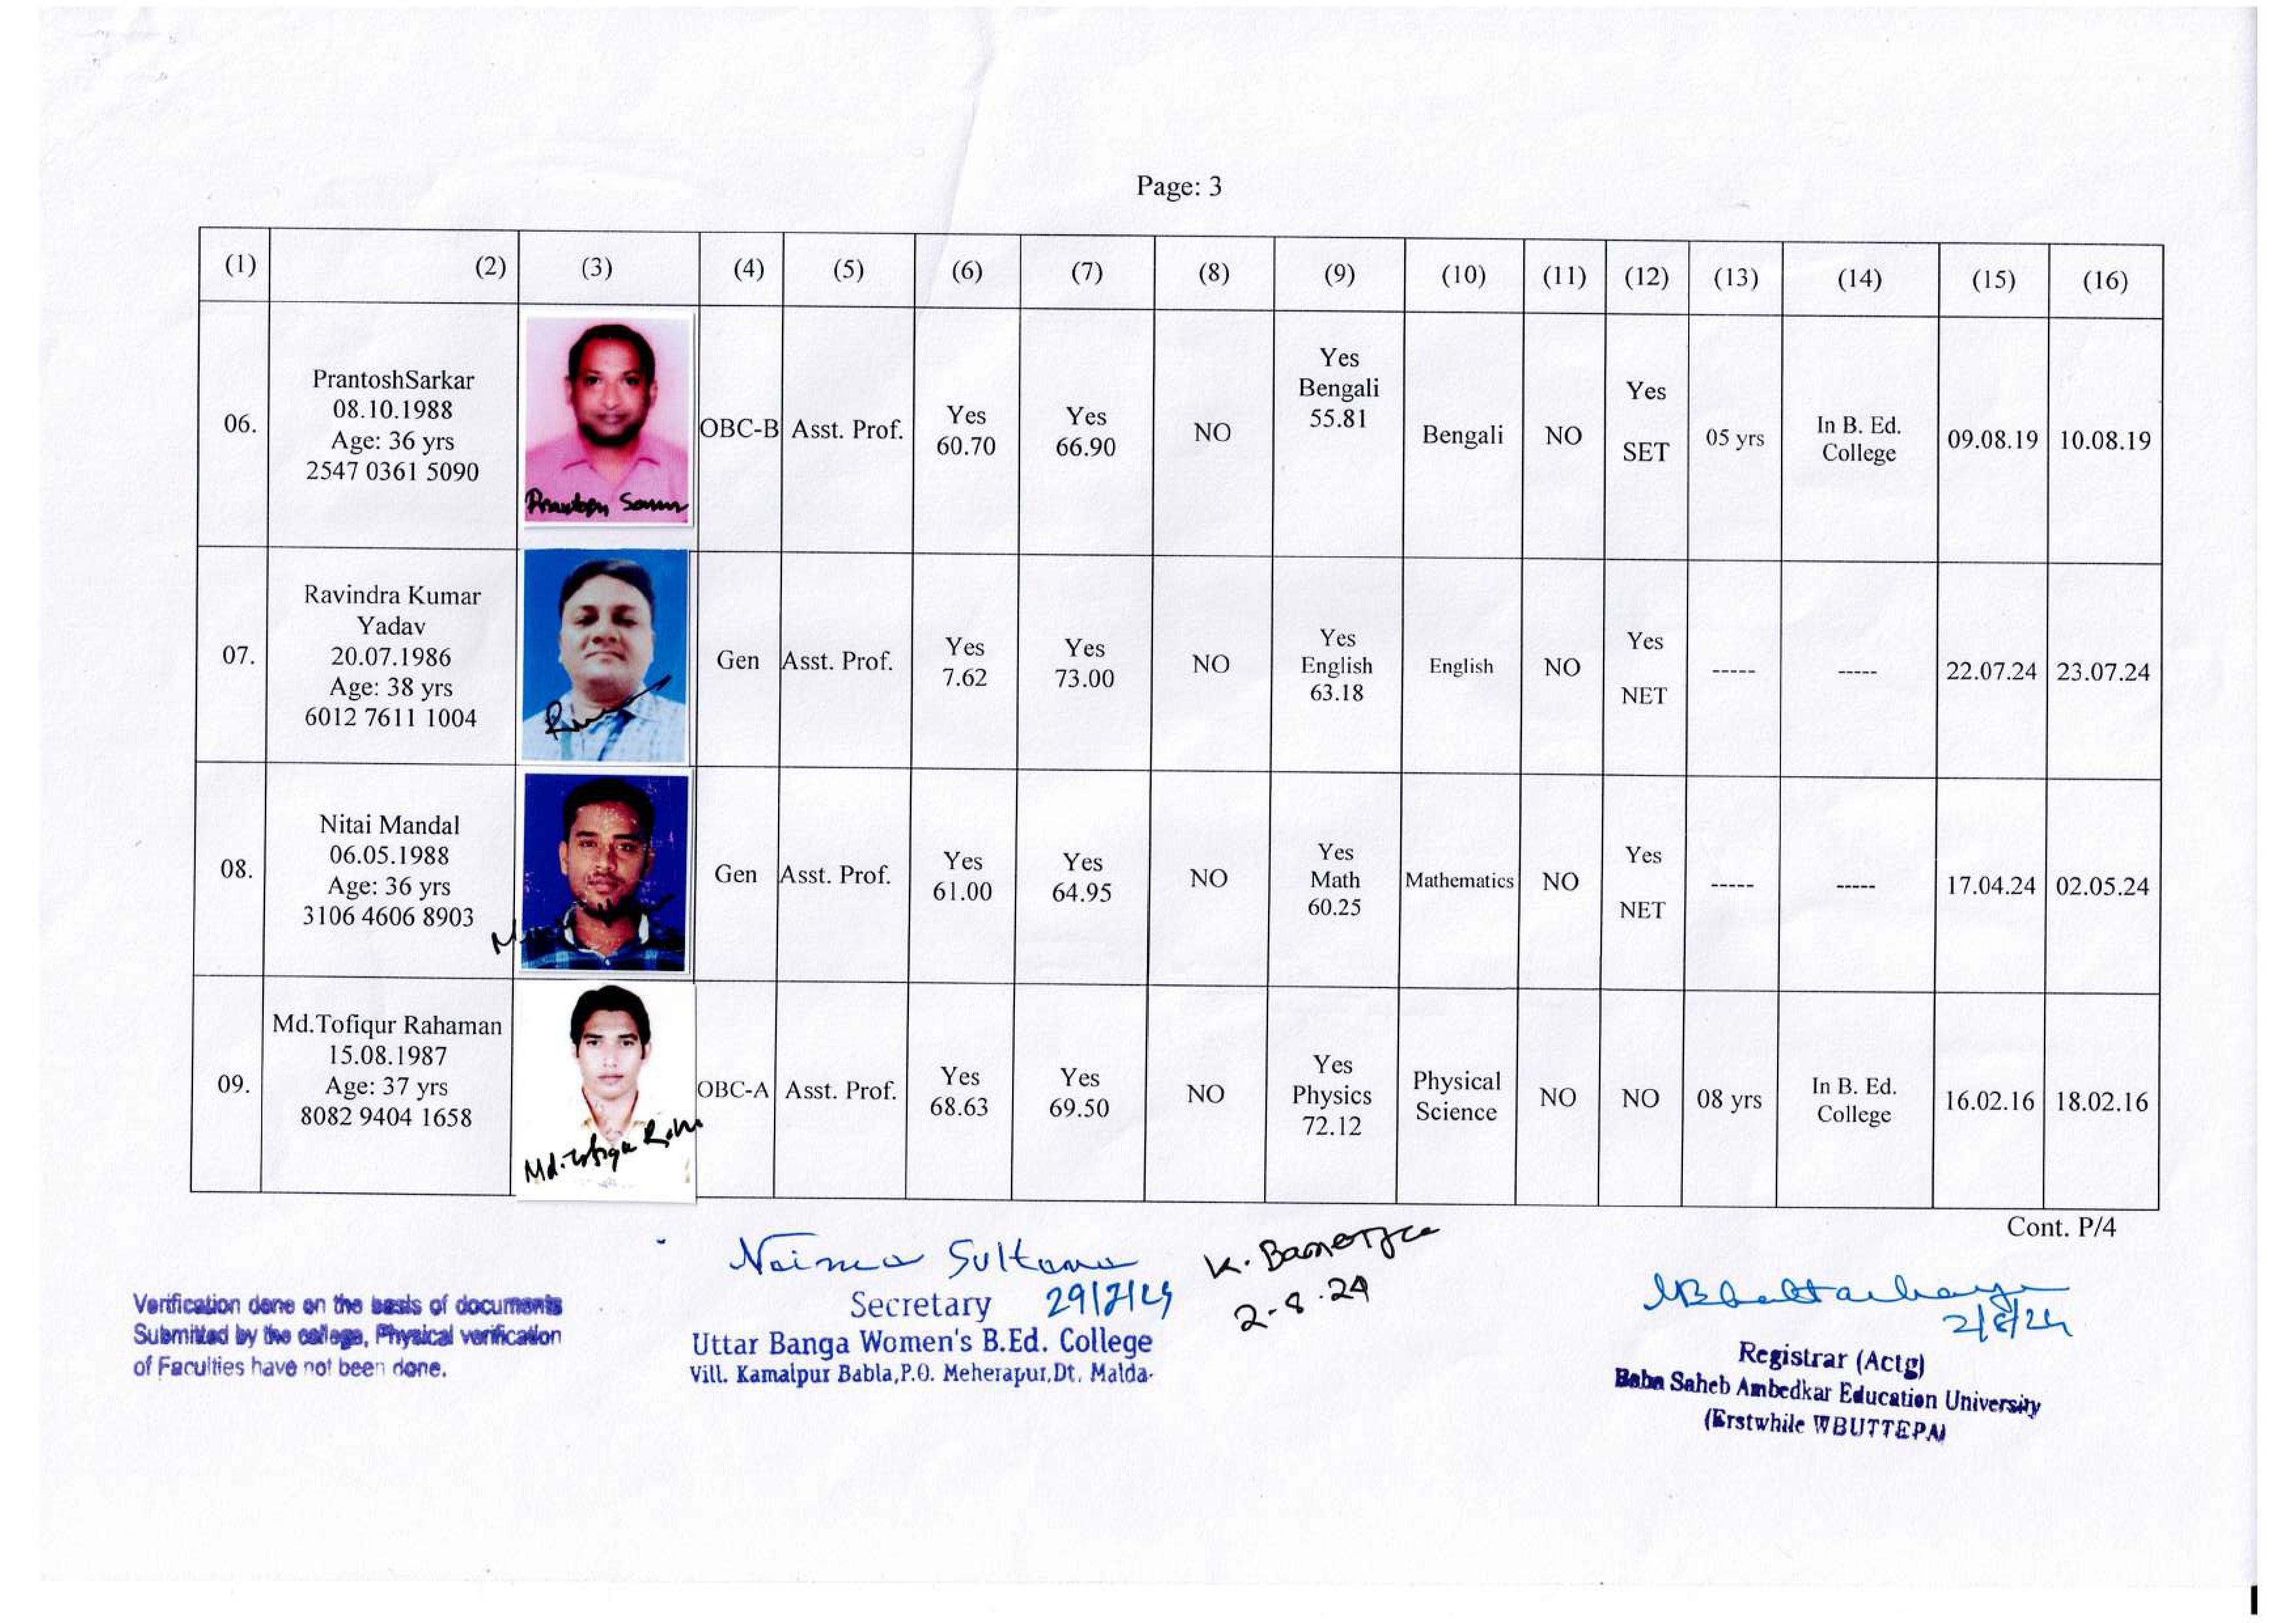 Page: 3
(1) (2) (3) (4) (5) (6) (7) (8) (9) (10) (11) (12) (13) (14) (15) (16)
06.
PrantoshSarkar
08.10.1988
Age: 36 yrs
2547 0361 5090
OBC-B
Asst. Prof.
Yes
60.70
Yes
66.90
NO
Yes
Bengali
55.81
Bengali
NO
Yes
SET
05 yrs
In B. Ed.
College
09.08.19
10.08.19
07.
Ravindra Kumar
Yadav
20.07.1986
Age: 38 yrs
6012 7611 1004
Gen
Asst. Prof.
Yes
7.62
Yes
73.00
NO
Yes
English
63.18
English
NO
Yes
NET
-----
-----
22.07.24
23.07.24
08.
Nitai Mandal
06.05.1988
Age: 36 yrs
3106 4606 8903
Gen
Asst. Prof.
Yes
61.00
Yes
64.95
NO
Yes
Math
60.25
Mathematics
NO
Yes
NET
-----
-----
17.04.24
02.05.24
09.
Md.Tofiqur Rahaman
15.08.1987
Age: 37 yrs
8082 9404 1658
OBC-A
Asst. Prof.
Yes
68.63
Yes
69.50
NO
Yes
Physics
72.12
Physical
Science
NO
NO
08 yrs
In B. Ed.
College
16.02.16
18.02.16
Cont. P/4
Verification done on the basis of documents
Submitted by the college, Physical verification
of Faculties have not been done.
Naima Sultana
Secretary 29/7/24
Uttar Banga Women's B.Ed. College
Vill. Kamalpur Babla,P.O. Meherapur,Dt. Malda-
K. Banerjee
2-8-24
Bhattacharyya
2/8/24
Registrar (Actg)
Baba Saheb Ambedkar Education University
(Erstwhile WBUTTEPA)